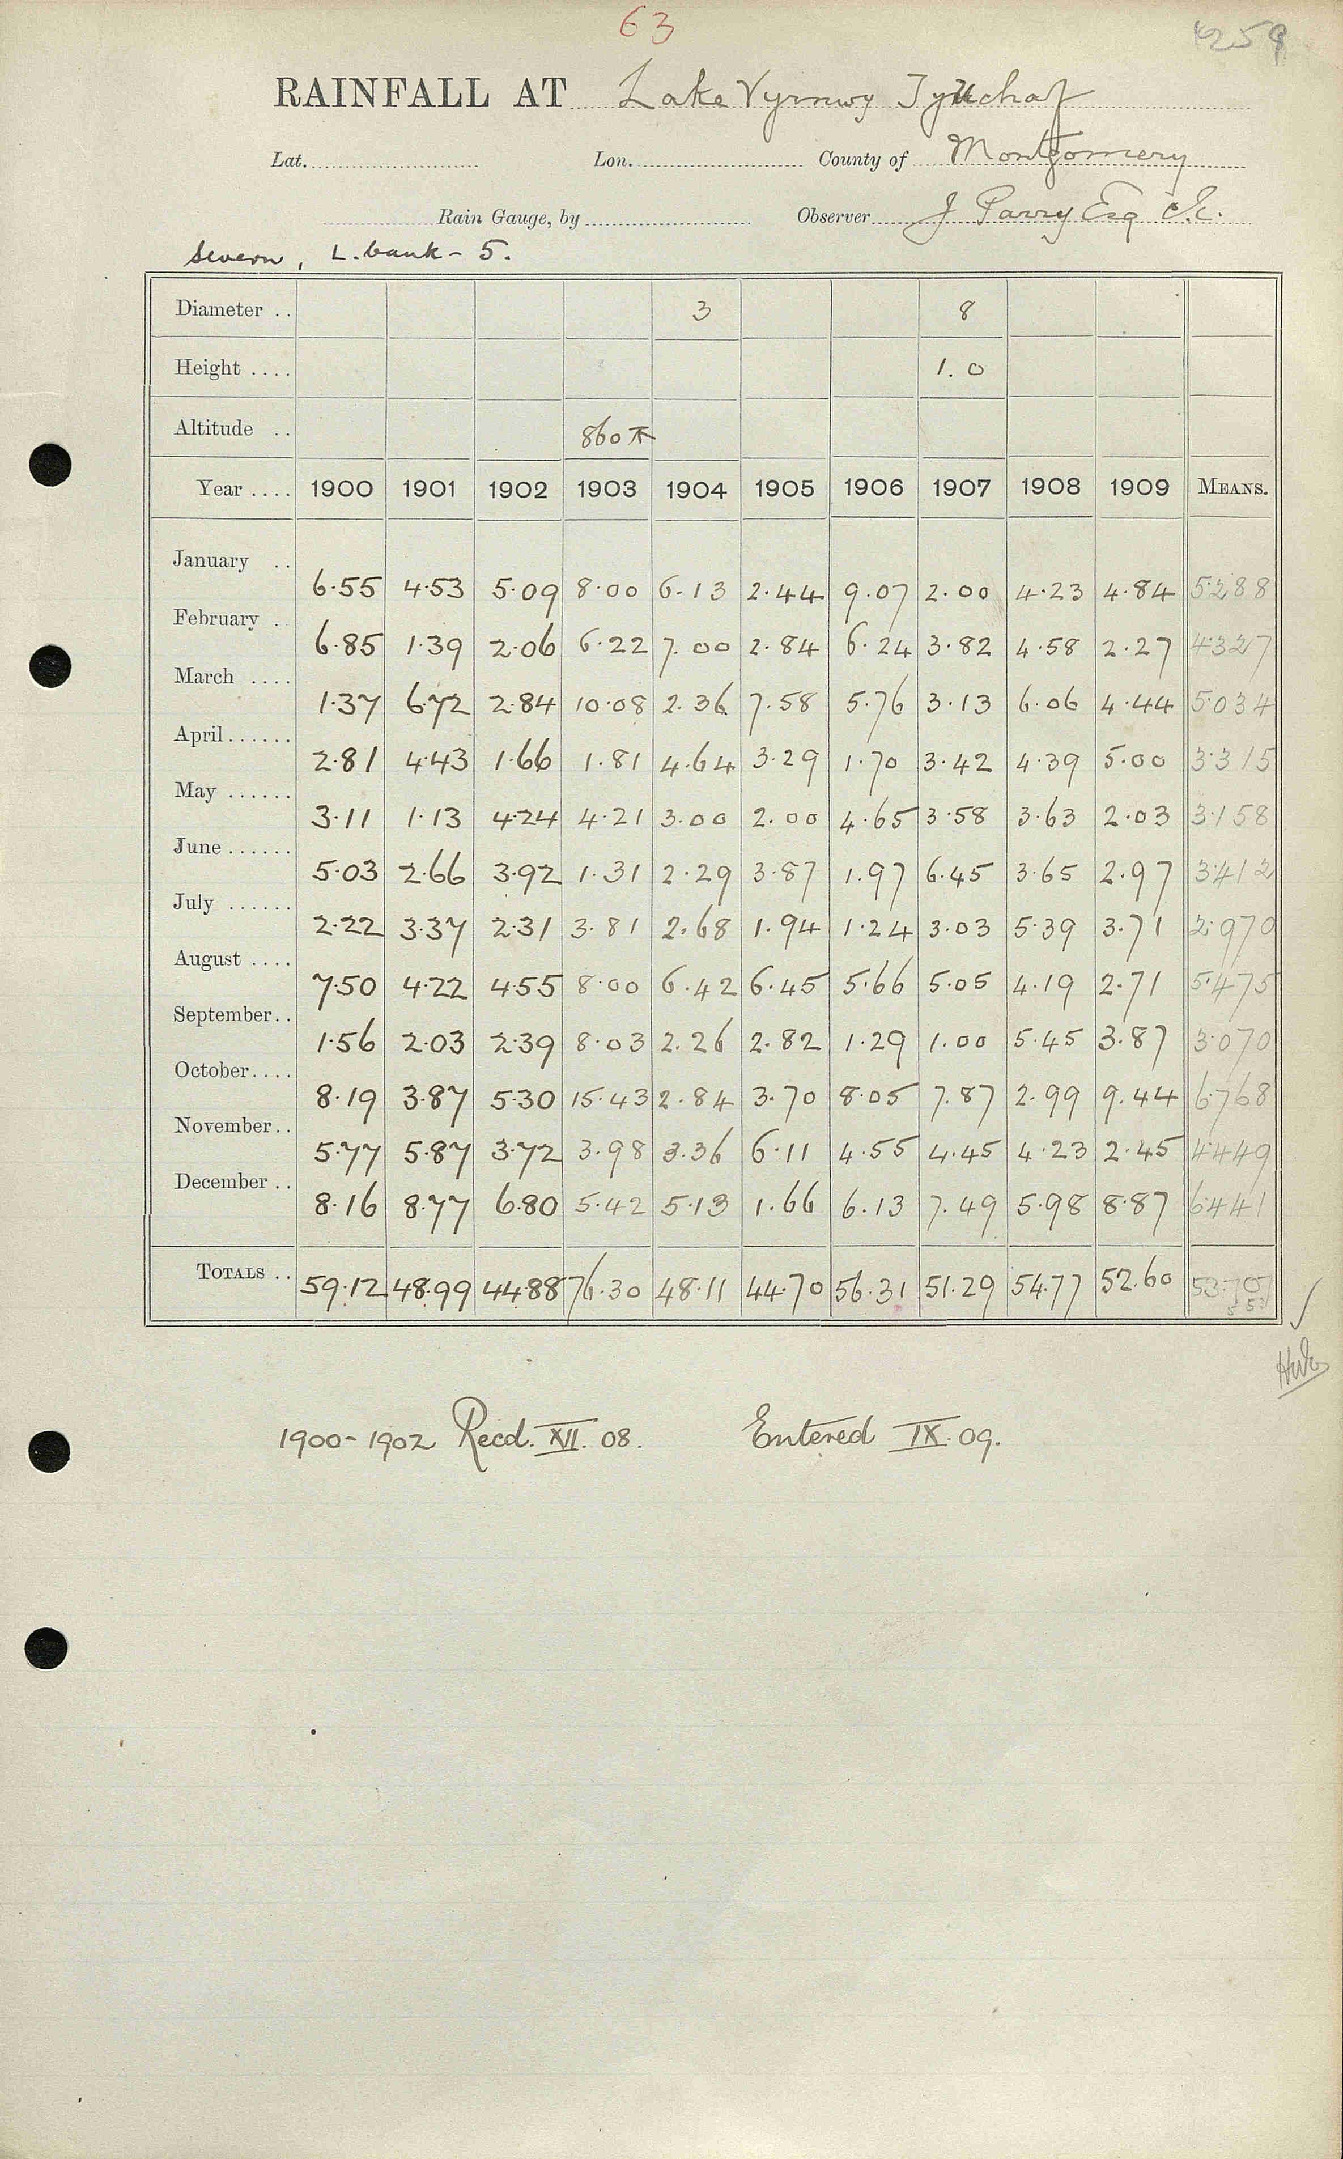 63
4259
RAINFALL AT Lake Vyrnwy Tynuchaf
Lat. Lon. County of Montgomery
Rain Gauge, by Observer J Parry Esq C.E.
Severn, L. bank - 5.
Diameter .. 3 8
Height .... 1.0
Altitude .. 860
Year .... 1900 1901 1902 1903 1904 1905 1906 1907 1908 1909 MEANS.
January .. 6.55 4.53 5.09 8.00 6.13 2.44 9.07 2.00 4.23 4.84 5.288
February .. 6.85 1.39 2.06 6.22 7.00 2.84 6.24 3.82 4.58 2.27 4.327
March .... 1.37 6.72 2.84 10.08 2.36 7.58 5.76 3.13 6.06 4.44 5.034
April...... 2.81 4.43 1.66 1.81 4.64 3.29 1.70 3.42 4.39 5.00 3.315
May ...... 3.11 1.13 4.24 4.21 3.00 2.00 4.65 3.58 3.63 2.03 3.158
June ...... 5.03 2.66 3.92 1.31 2.29 3.87 1.97 6.45 3.65 2.97 3.412
July ...... 2.22 3.37 2.31 3.81 2.68 1.94 1.24 3.03 5.39 3.71 2.970
August .... 7.50 4.22 4.55 8.00 6.42 6.45 5.66 5.05 4.19 2.71 5.475
September.. 1.56 2.03 2.39 8.03 2.26 2.82 1.29 1.00 5.45 3.87 3.070
October.... 8.19 3.87 5.30 15.43 2.84 3.70 8.05 7.87 2.99 9.44 6.768
November.. 5.77 5.87 3.72 3.98 3.36 6.11 4.55 4.45 4.23 2.45 4.449
December .. 8.16 8.77 6.80 5.42 5.13 1.66 6.13 7.49 5.98 8.87 6.441
TOTALS .. 59.12 48.99 44.88 76.30 48.11 44.70 56.31 51.29 54.77 52.60 53.70
1900-1902 Recd. XII. 08. Entered IX. 09.